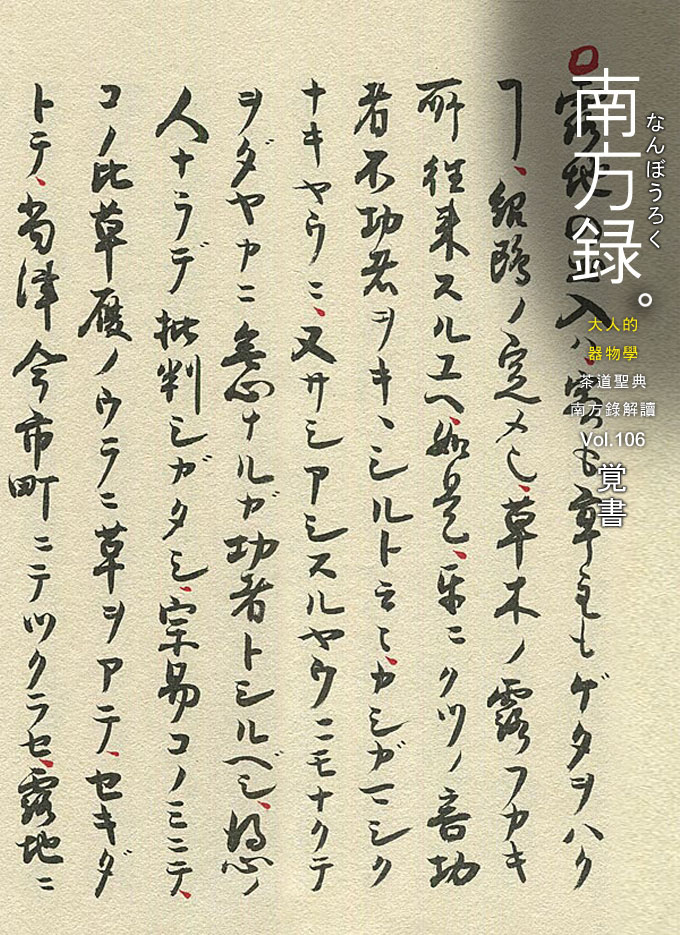 露地の出入ハ、客も亭主もゲタヲハク
ヿ、紹鴎ノ定メ也、草木ノ露フカキ
所往来スルユヘ如是、互ニクツノ音功
者不功者ヲキヽシルト云々、カシガマシク
ナキヤウニ、又サシアシスルヤウニモナクテ
ヲダヤカニ無心ナルガ功者トシルベシ、得心ノ
人ナラデ批判シガタシ、宗易コノミニテ、
コノ比草履ノウラニ草ヲアテ、セキダ
トテ、当津今市町ニテツクラセ、露地ニ
南方録。
なんぼうろく
大人的
器物學
茶道聖典
南方錄解讀
Vol.106
覚書